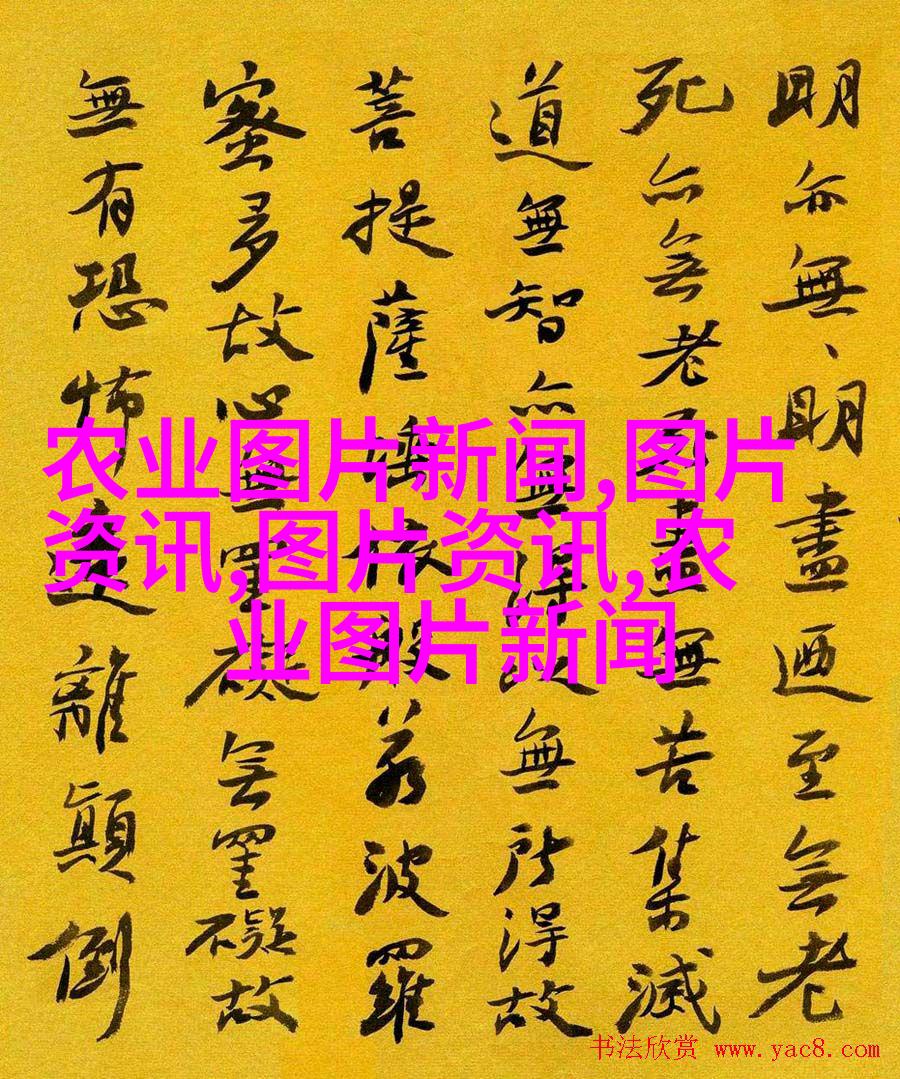 明亦無、明盡迺至無老
死亦無老死盡無苦集滅
道無智亦無得以無所得故
菩提薩埵依般若波羅
蜜多故心無罣礙無罣礙故
無有恐怖遠離顛倒
农业图片新闻,图片
资讯,图片资讯,农
业图片新闻
书法欣赏 www.yac8.com